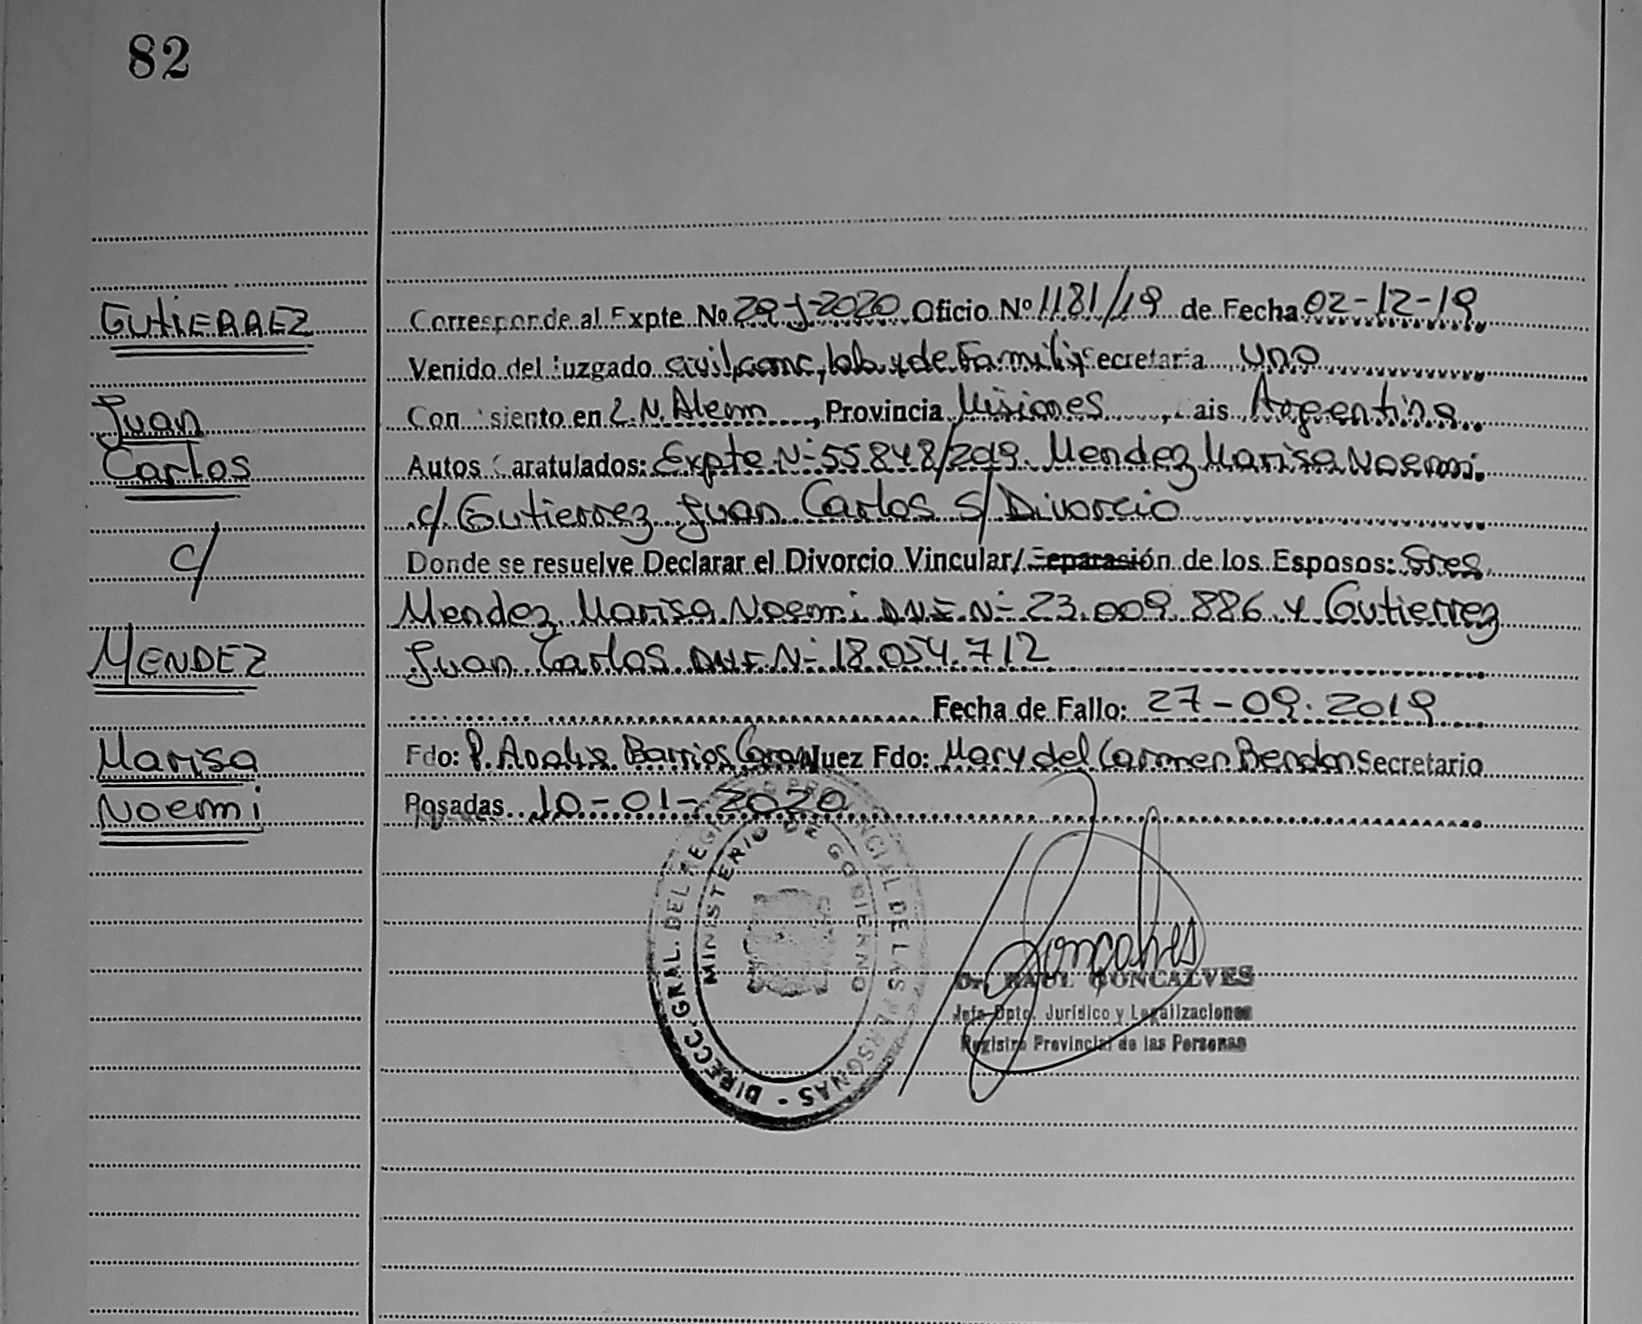 82
GUTIERREZ
Juan
Carlos
c/
MENDEZ
Marisa
Noemi
Corresponde al Expte No 29-J-2020 Oficio Nº 1181/19 de Fecha 02-12-19
Venido del Juzgado civil, comc, lab. y de Famili Secretaria uno
Con siento en L.N. Alem, Provincia Misiones, ais Argentina
Autos Caratulados: Expte N- 55848/2019. Mendez Marisa Noemi
c/ Gutierrez Juan Carlos s/ Divorcio
Donde se resuelve Declarar el Divorcio Vincular/Separasión de los Esposos: Sres
Mendez Marisa Noemi DNI N- 23.009.886 y Gutierrez
Juan Carlos DNI N- 18.054.712
Fecha de Fallo: 27-09-2019
Fdo: P. Analia Barrios Juez Fdo: Mary del Carmen Secretario
Posadas 10-01-2020
DIRECC. GRAL. DEL REGISTRO PROVINCIAL DE LAS PERSONAS -
MINISTERIO DE GOBIERNO
Dr. RAUL GONCALVES
Jefe Dpto. Jurídico y Legalizaciones
Registro Provincial de las Personas